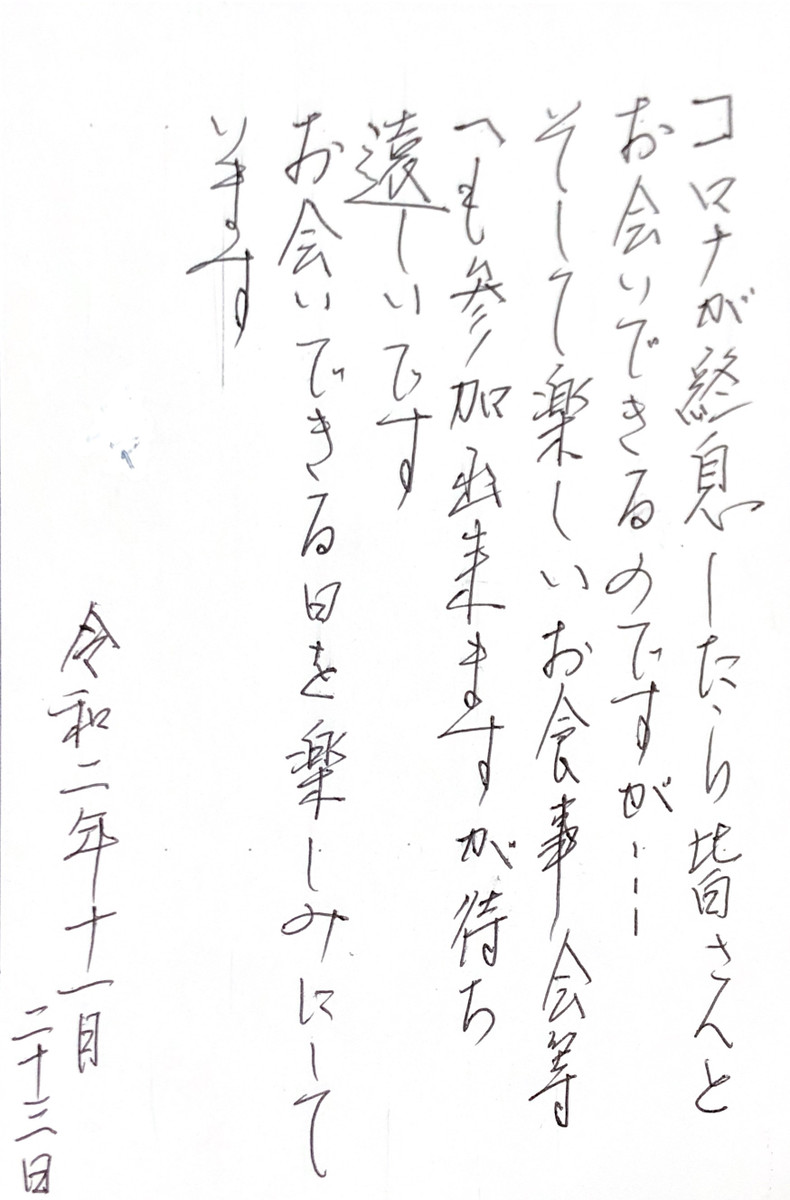 コロナが終息したら皆さんと
お会いできるのですが…
そして楽しいお食事会等
へも参加出来ますが待ち
遠しいです
お会いできる日を楽しみにして
います
令和二年十一月
二十三日